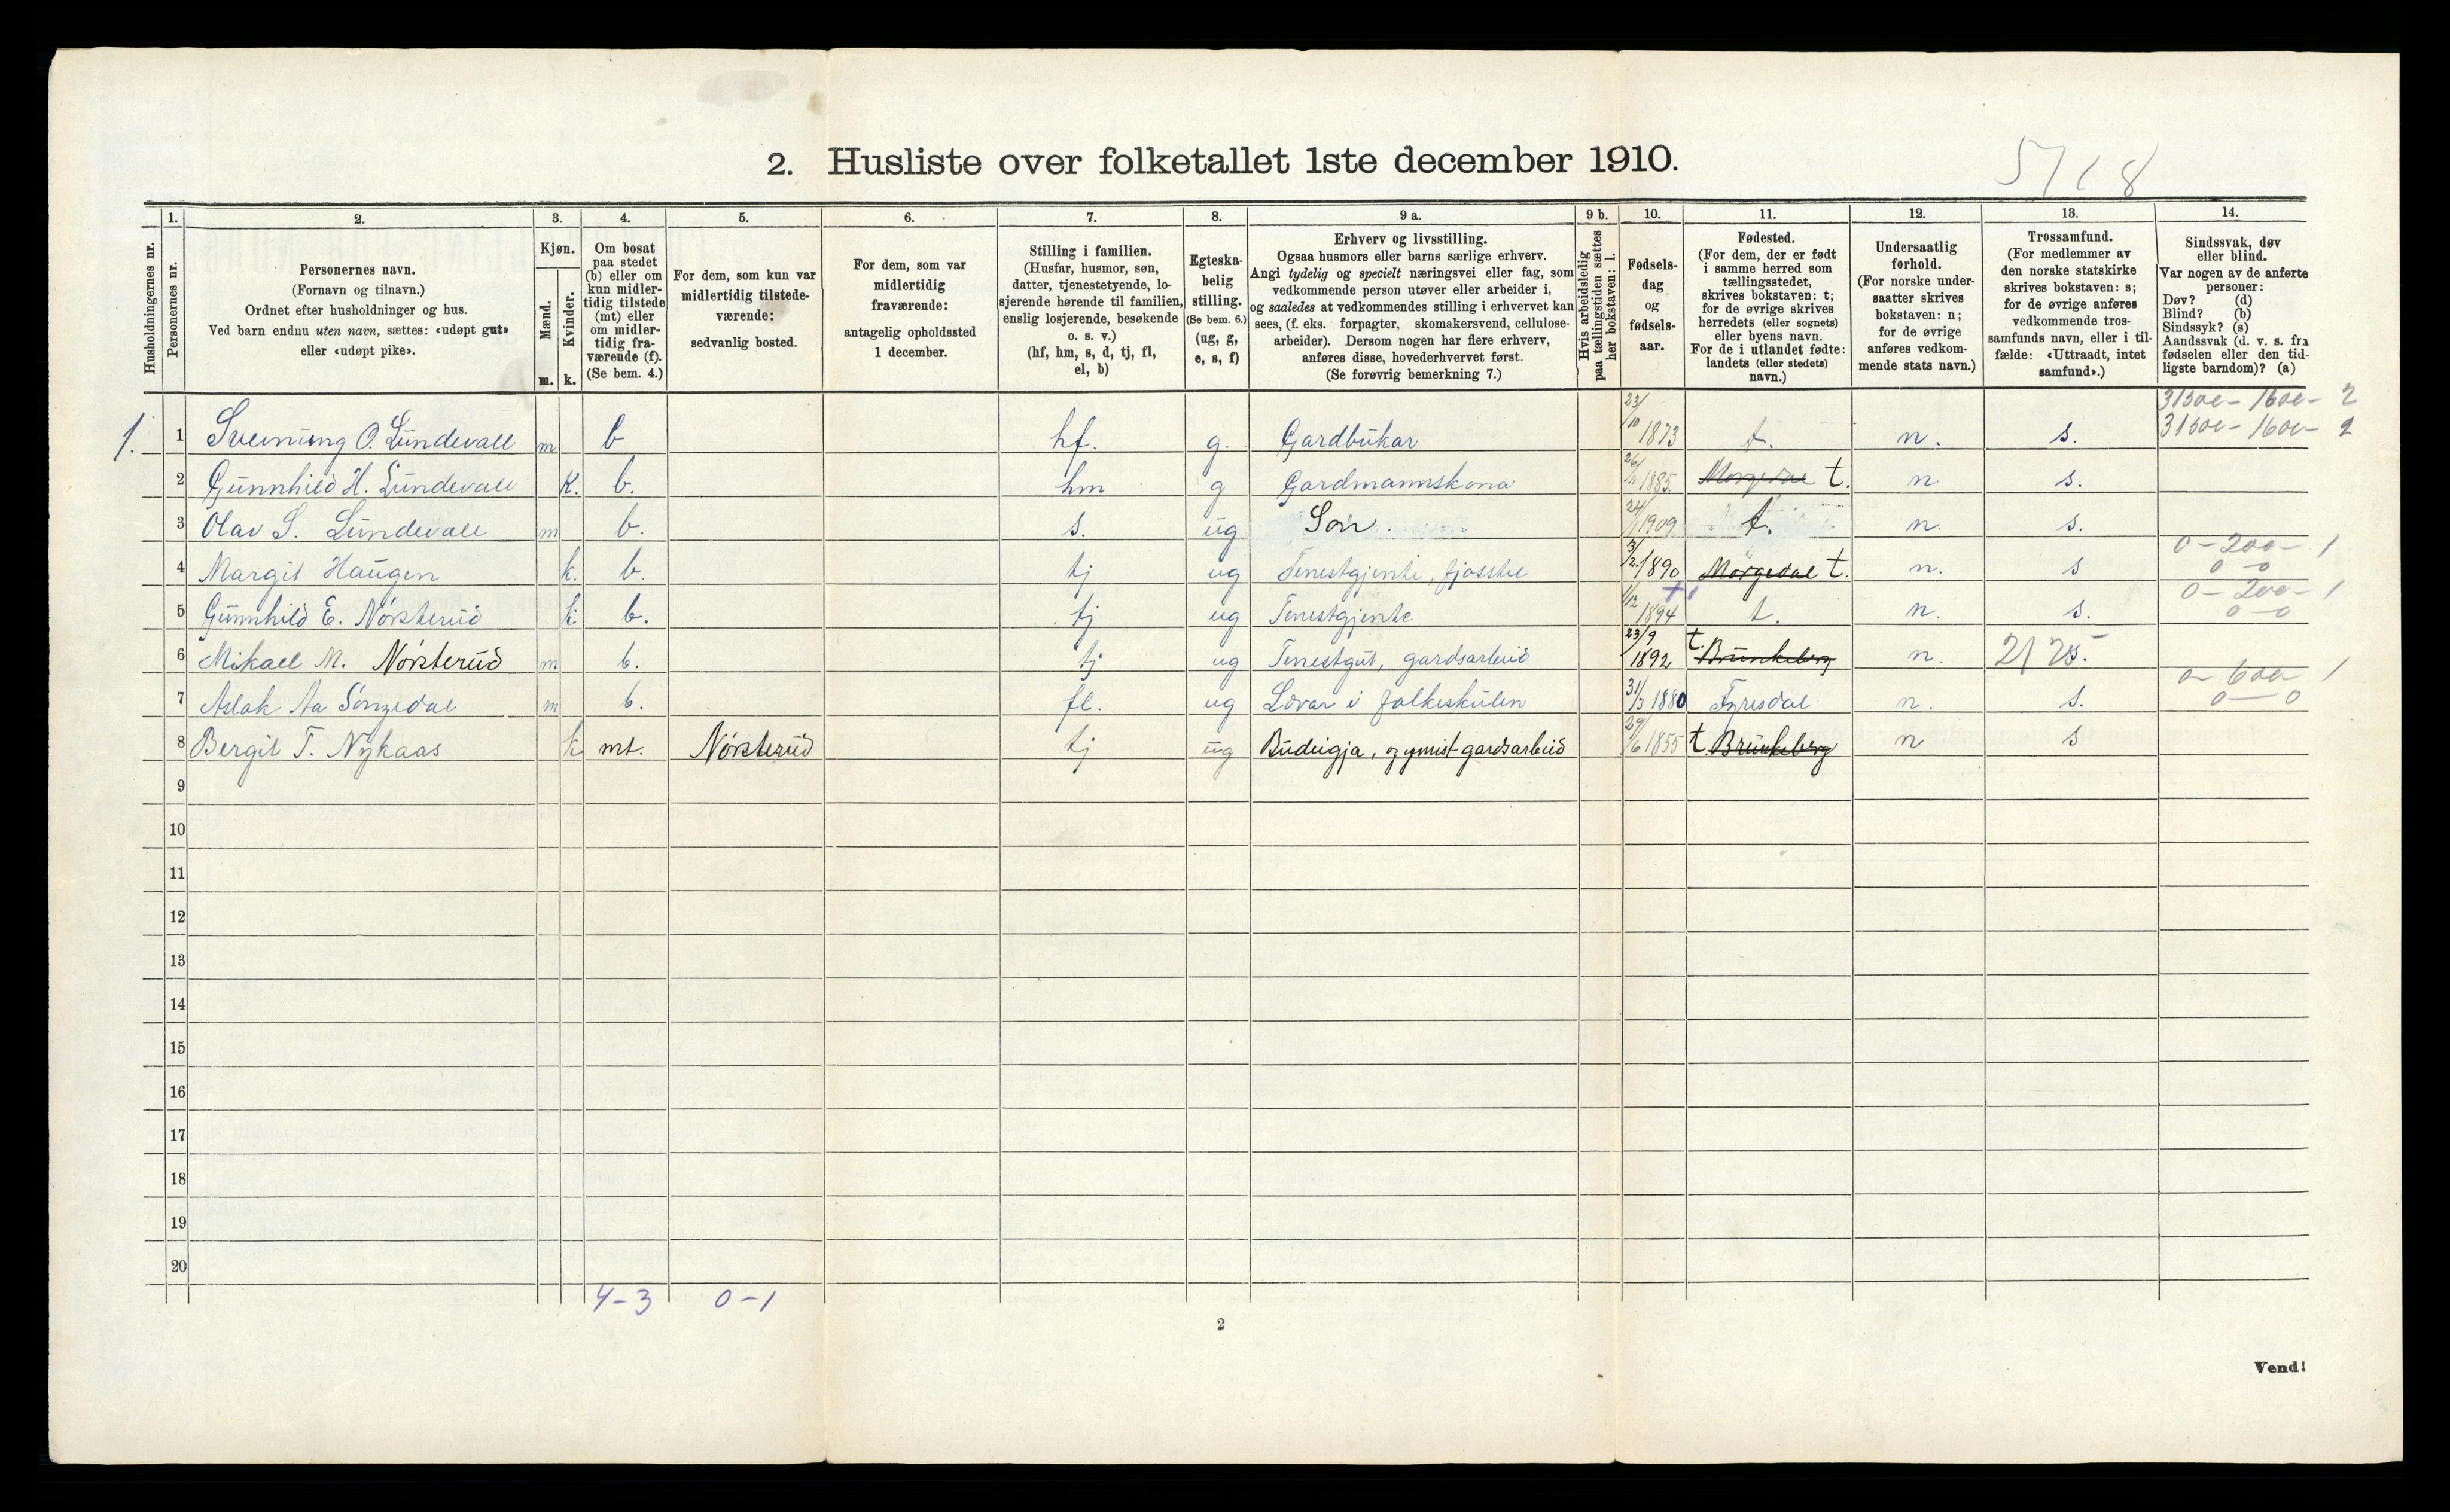 2. Husliste over folketallet 1ste december 1910.
5718
Husholdningernes nr.
1. Personernes nr.
2. Personernes navn.
(Fornavn og tilnavn.)
Ordnet efter husholdninger og hus.
Ved barn endnu uten navn, sættes: «udøpt gut»
eller «udøpt pike».
3. Kjøn.
Mænd. m.
Kvinder. k.
4. Om bosat
paa stedet
(b) eller om
kun midler-
tidig tilstede
(mt) eller
om midler-
tidig fra-
værende (f).
(Se bem. 4.)
5. For dem, som kun var
midlertidig tilstede-
værende:
sedvanlig bosted.
6. For dem, som var
midlertidig
fraværende:
antagelig opholdssted
1 december.
7. Stilling i familien.
(Husfar, husmor, søn,
datter, tjenestetyende, lo-
sjerende hørende til familien,
enslig losjerende, besøkende
o. s. v.)
(hf, hm, s, d, tj, fl,
el, b)
8. Egteska-
belig
stilling.
(Se bem. 6.)
(ug, g,
e, s, f)
9 a. Erhverv og livsstilling.
Ogsaa husmors eller barns særlige erhverv.
Angi tydelig og specielt næringsvei eller fag, som
vedkommende person utøver eller arbeider i,
og saaledes at vedkommendes stilling i erhvervet kan
sees, (f. eks. forpagter, skomakersvend, cellulose-
arbeider). Dersom nogen har flere erhverv,
anføres disse, hovederhvervet først.
(Se forøvrig bemerkning 7.)
9 b. Hvis arbeidsledig
paa tællingstiden sættes
her bokstaven: l.
10. Fødsels-
dag
og
fødsels-
aar.
11. Fødested.
(For dem, der er født
i samme herred som
tællingsstedet,
skrives bokstaven: t;
for de øvrige skrives
herredets (eller sognets)
eller byens navn.
For de i utlandet fødte:
landets (eller stedets)
navn.)
12. Undersaatlig
forhold.
(For norske under-
saatter skrives
bokstaven: n;
for de øvrige
anføres vedkom-
mende stats navn.)
13. Trossamfund.
(For medlemmer av
den norske statskirke
skrives bokstaven: s;
for de øvrige anføres
vedkommende tros-
samfunds navn, eller i til-
fælde: «Uttraadt, intet
samfund».)
14. Sindssvak, døv
eller blind.
Var nogen av de anførte
personer:
Døv? (d)
Blind? (b)
Sindssyk? (s)
Aandssvak (d. v. s. fra
fødselen eller den tid-
ligste barndom)? (a)
1. 1 Sveinung O. Lundevall m b hf. g. Gardbukar 23/10 1873 t. n. s. 31500 - 1600 - 2
31500 - 1600 - 2
2 Gunnhild H. Lundevall k. b. hm g Gardmannskona 1885. Morgedal t. n. s.
3 Olav S. Lundevall m b. s. ug Son. 1909 t. n. s.
4 Margit Haugen k. b. tj ug Tenestgjente, fjosstel 3/2 1890 Morgedal t. n. s 0 - 200 - 1
0 - 0
5 Gunnhild E. Norsterud k b. tj ug Tenestgjente 1/12 1894 t. n. s. 0 - 200 - 1
0 - 0
6 Mikael M. Norsterud m b. tj ug Tenestgut, gardsarbeid 23/9 1892 t. Brunkeberg n. s.
7 Aslak Aa Songedal m b. fl. ug Lærar i folkeskulen 31/3 1880 Fyresdal n. s. 0 - 600 - 1
0 - 0
8 Bergit T. Nykaas k mt. Norsterud tj ug Budeigja, og ymist gardsarbeid 29/6 1855 t. Brunkeberg n s
9
10
11
12
13
14
15
16
17
18
19
20
4 - 3 0 - 1
2
Vend!